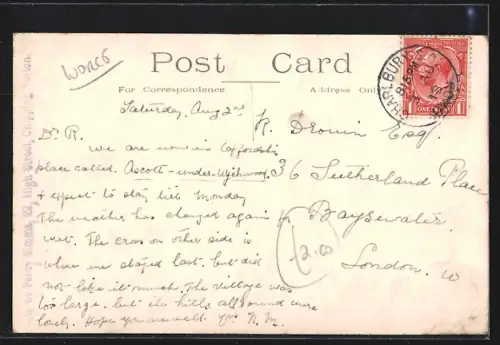 WORCS
Post Card
For Correspondence
Address Only
Percy Simms, 22, High Street, Chipping Norton.
CHARLBURY
8.15 PM
ONE PENNY
Saturday, Aug 2nd
Dr R.
We are now in Oxfordshire
place called Ascott-under-Wychwood
& expect to stay till Monday
The weather has changed again for
wet. The cross on other side is
where we stayed last but did
not like it much. The village was
too large. but the hills all round were
lovely. Hope you are well. Yrs N.M.
R. Drouin Esq.
36 Sutherland Place
Bayswater.
London. W
12.00